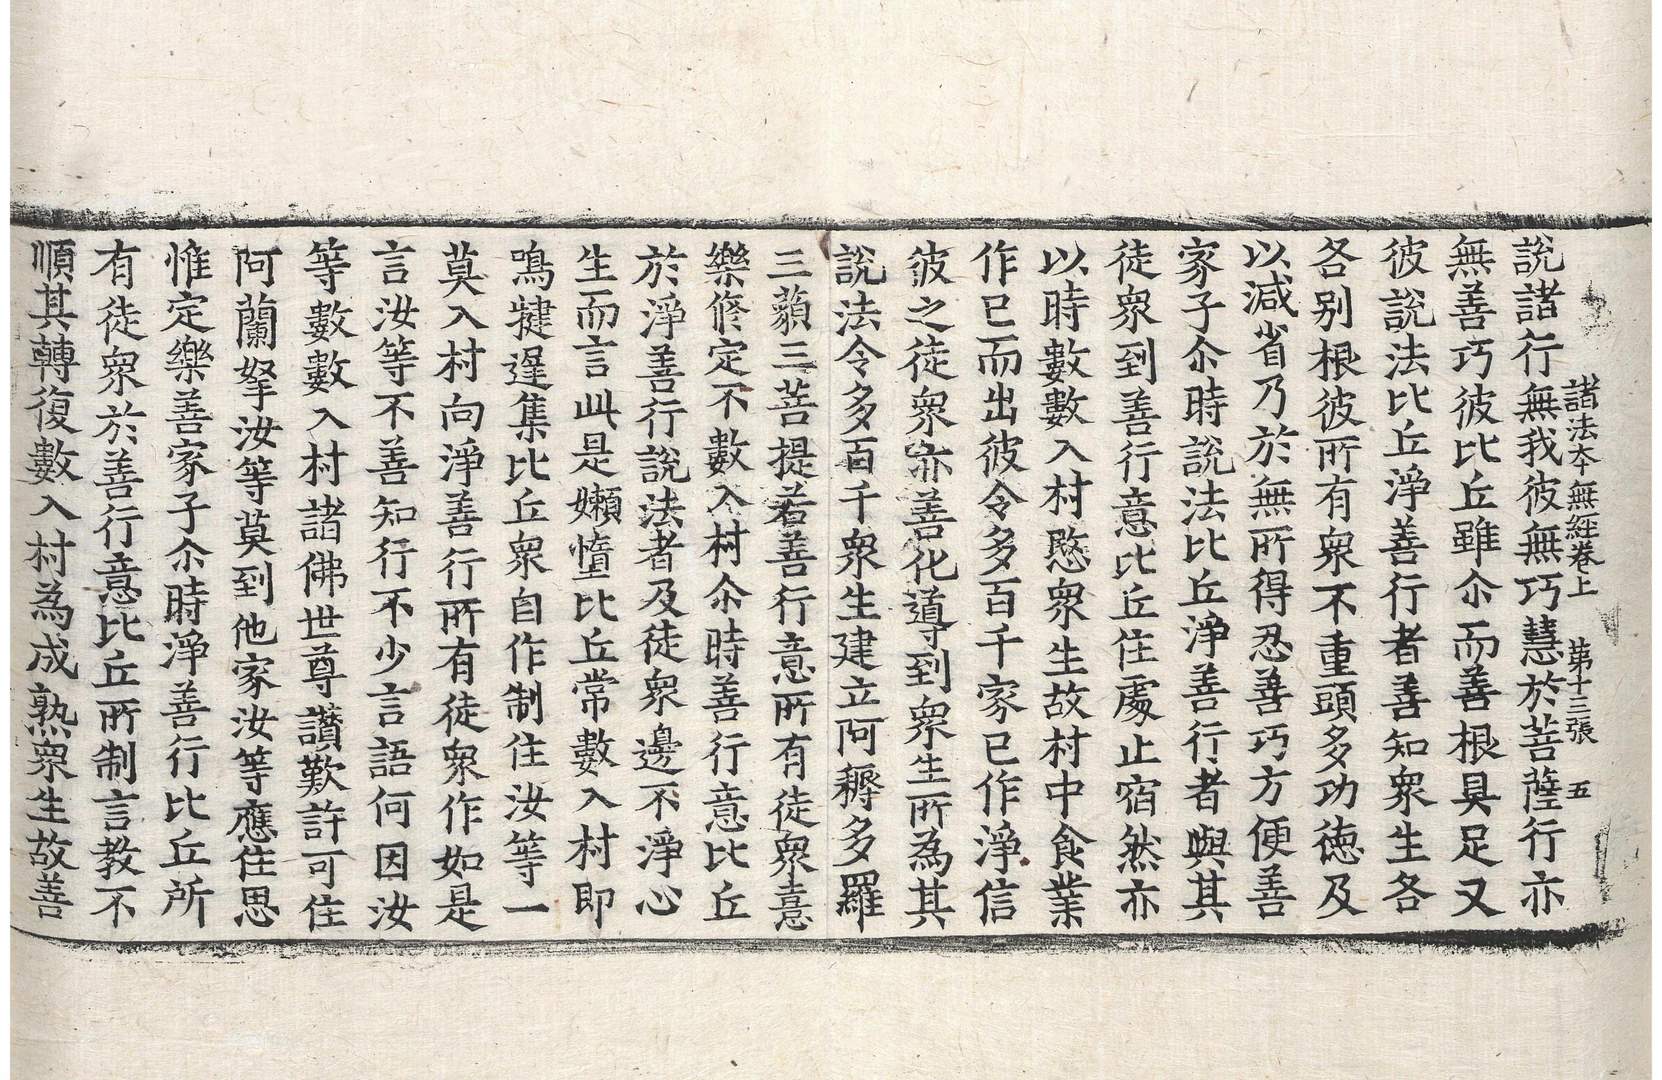 諸法夲無經卷上 第十三張 五
說諸行無我彼無巧慧於菩薩行亦
無善巧彼比丘雖尒而善根具足又
彼說法比丘淨善行者善知衆生各
各别根彼所有衆不重頭多功徳及
以減省乃於無所得忍善巧方便善
家子尒時說法比丘淨善行者與其
徒衆到善行意比丘住處止宿然亦
以時數數入村愍衆生故村中食業
作已而出彼令多百千家已作淨信
彼之徒衆亦善化導到衆生所為其
說法令多百千衆生建立阿耨多羅
三藐三菩提若善行意所有徒衆憙
樂修定不數入村尒時善行意比丘
於淨善行說法者及徒衆邊不淨心
生而言此是嬾惰比丘常數入村即
鳴揵遲集比丘衆自作制住汝等一
莫入村向淨善行所有徒衆作如是
言汝等不善知行不少言語何因汝
等數數入村諸佛世尊讚歎許可住
阿蘭拏汝等莫到他家汝等應住思
惟定樂善家子尒時淨善行比丘所
有徒衆於善行意比丘所制言教不
順其轉復數入村為成熟衆生故善